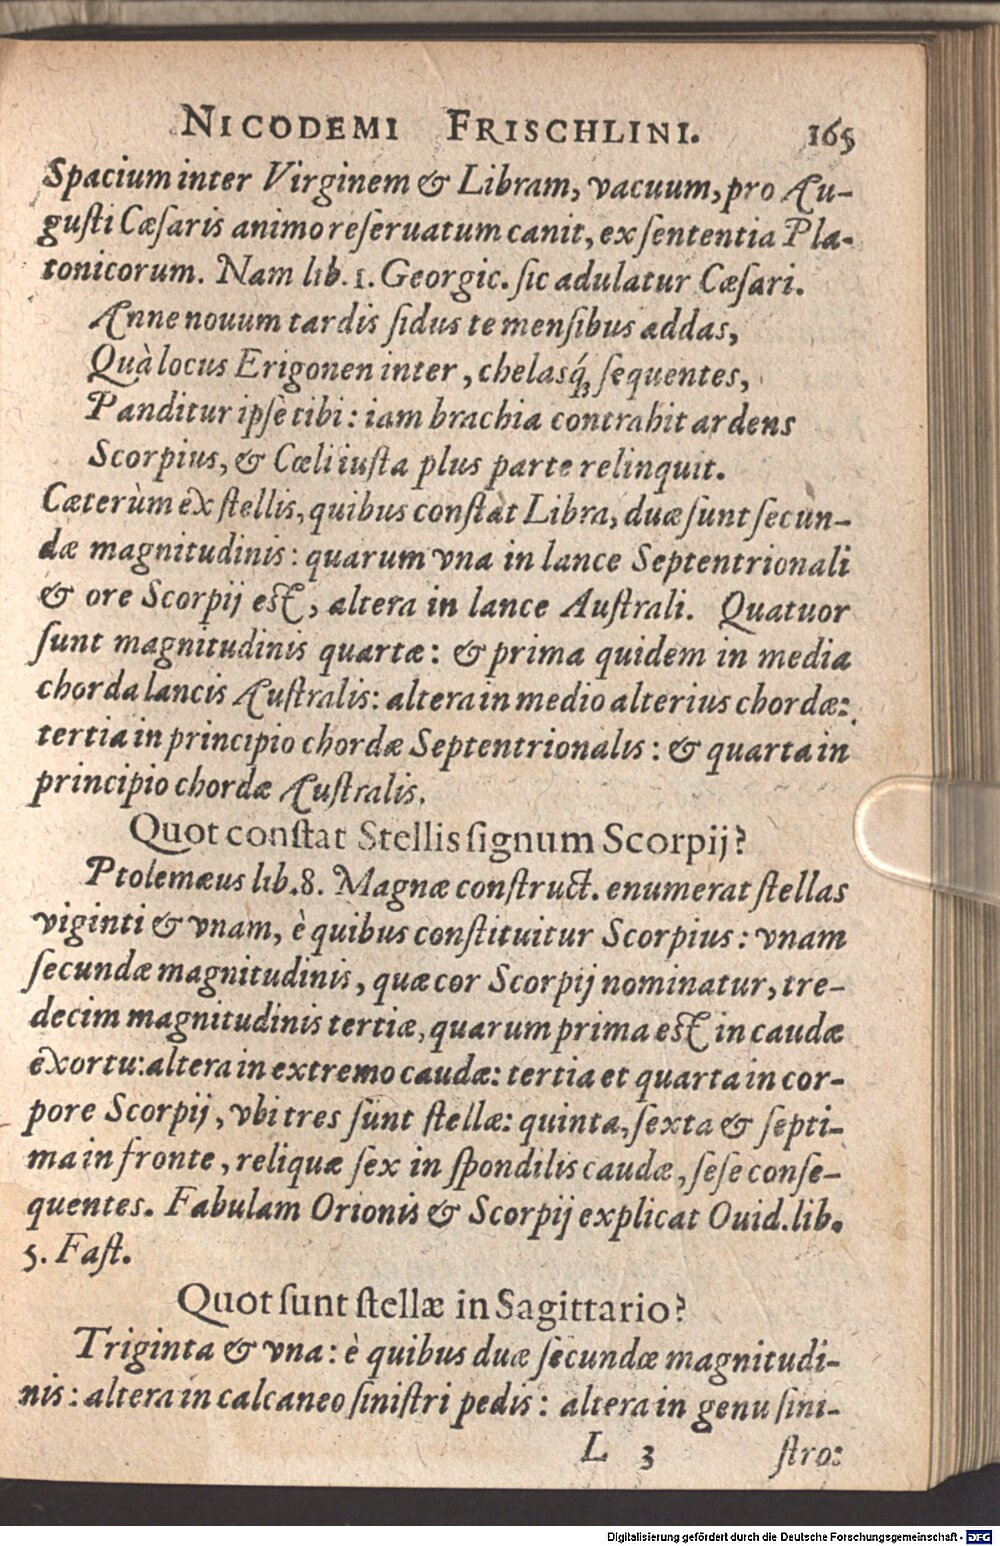 NICODEMI FRISCHLINI. 165
Spacium inter Virginem & Libram, vacuum, pro Au-
guſti Cæſaris animo reſeruatum canit, ex ſententia Pla-
tonicorum. Nam lib. 1. Georgic. ſic adulatur Cæſari.
Anne nouum tardis ſidus te menſibus addas,
Quà locus Erigonen inter, chelasq́; ſequentes,
Panditur ipſè tibi: iam brachia contrahit ardens
Scorpius, & Cœli iuſta plus parte relinquit.
Cæterùm ex ſtellis, quibus conſtat Libra, duæ ſunt ſecun-
dæ magnitudinis: quarum vna in lance Septentrionali
& ore Scorpij eſt, altera in lance Auſtrali. Quatuor
ſunt magnitudinis quartæ: & prima quidem in media
chorda lancis Auſtralis: altera in medio alterius chordæ:
tertia in principio chordæ Septentrionalis: & quarta in
principio chordæ Auſtralis.
Quot conſtat Stellis ſignum Scorpij?
Ptolemæus lib. 8. Magnæ conſtruct. enumerat ſtellas
viginti & vnam, è quibus conſtituitur Scorpius: vnam
ſecundæ magnitudinis, quæ cor Scorpij nominatur, tre-
decim magnitudinis tertiæ, quarum prima eſt in caudæ
exortu: altera in extremo caudæ: tertia et quarta in cor-
pore Scorpij, vbi tres ſunt ſtellæ: quinta, ſexta & ſepti-
ma in fronte, reliquæ ſex in ſpondilis caudæ, ſeſe conſe-
quentes. Fabulam Orionis & Scorpij explicat Ouid. lib.
5. Faſt.
Quot ſunt ſtellæ in Sagittario?
Triginta & vna: è quibus duæ ſecundæ magnitudi-
nis: altera in calcaneo ſiniſtri pedis: altera in genu ſini-
L 3 ſtro:
Digitalisierung gefördert durch die Deutsche Forschungsgemeinschaft - DFG